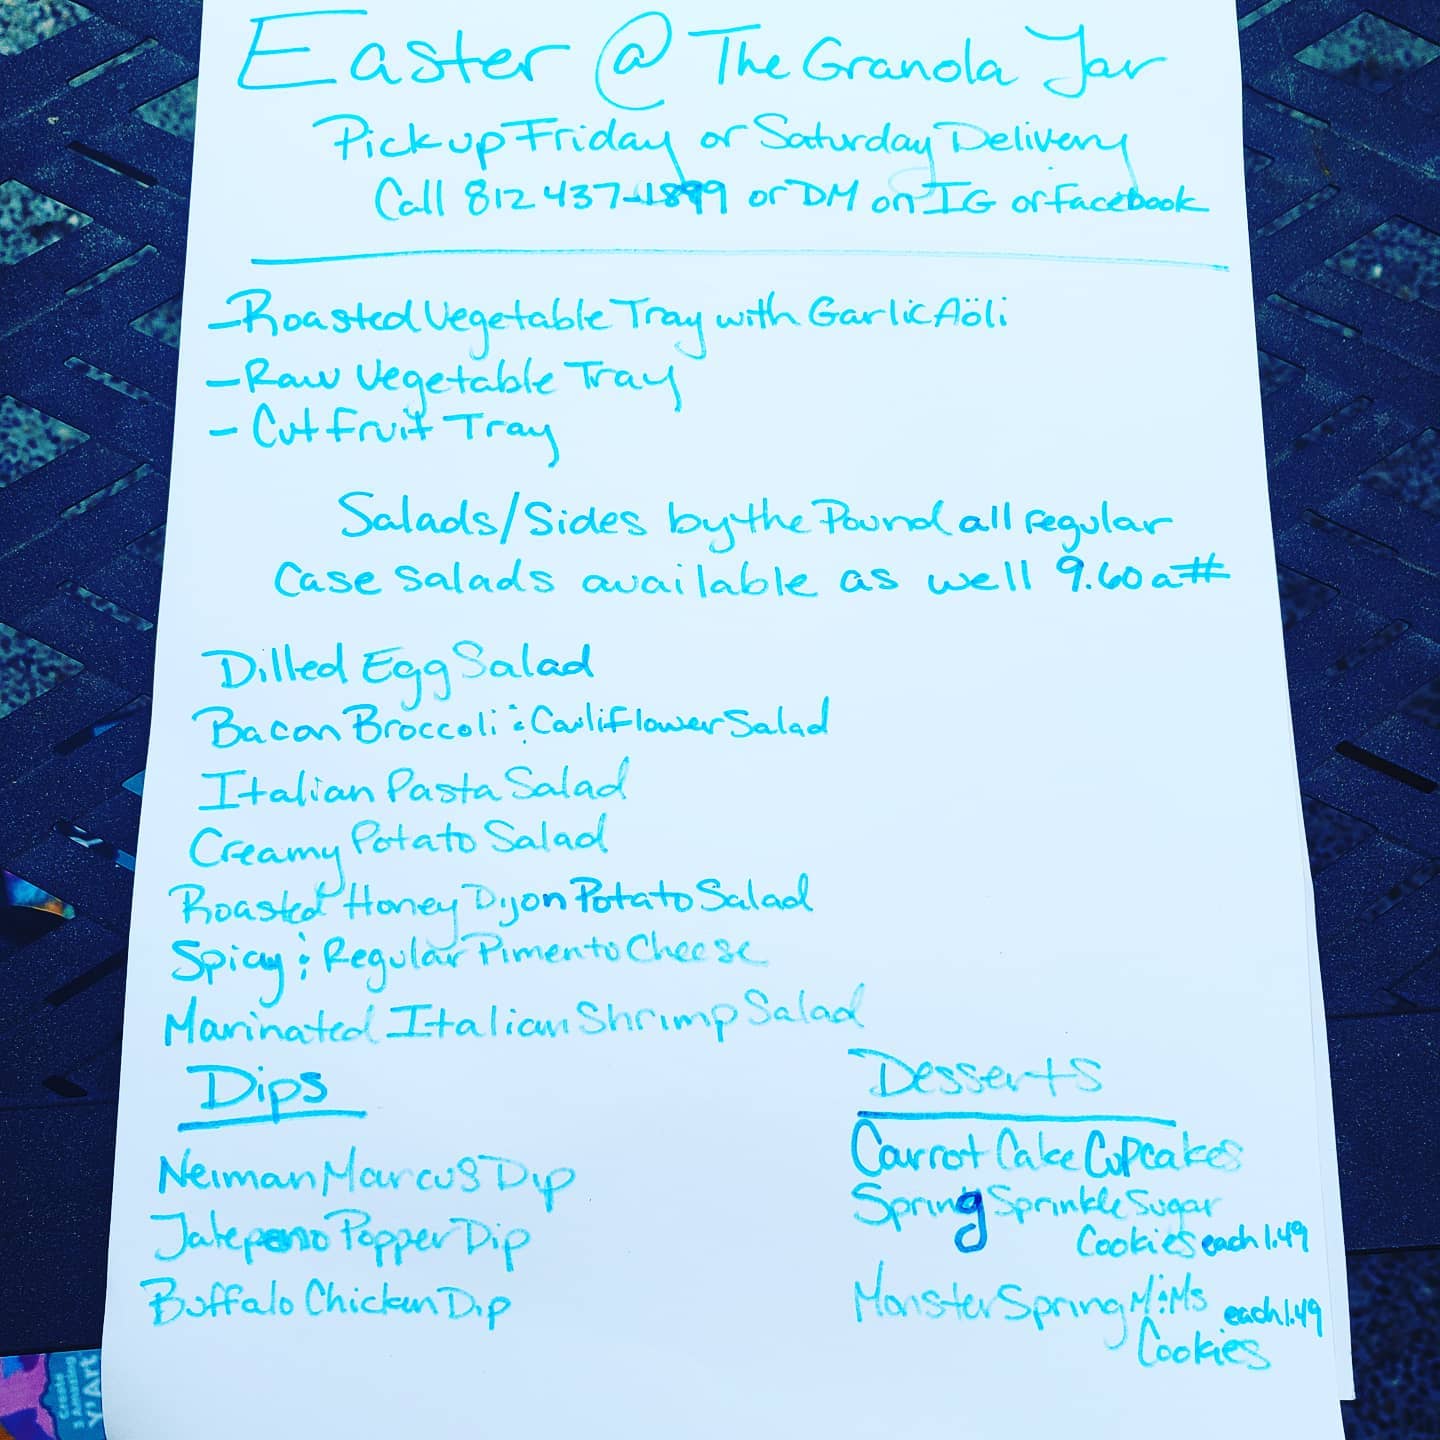 Easter @ The Granola Jar
Pickup Friday or Saturday Delivery
Call 812 437-1899 or DM on IG or Facebook
- Roasted Vegetable Tray with Garlic Aöli
- Raw Vegetable Tray
- Cut Fruit Tray
Salads/Sides by the Pound all regular
Case salads available as well 9.60 a #
Dilled Egg Salad
Bacon Broccoli & Cauliflower Salad
Italian Pasta Salad
Creamy Potato Salad
Roasted Honey Dijon Potato Salad
Spicy & Regular Pimento Cheese
Marinated Italian Shrimp Salad
Dips
Neiman Marcus Dip
Jalepeno Popper Dip
Buffalo Chicken Dip
Desserts
Carrot Cake Cupcakes
Spring Sprinkle Sugar
Cookies each 1.49
Monster Spring M&Ms each 1.49
Cookies
Create
Y'Art